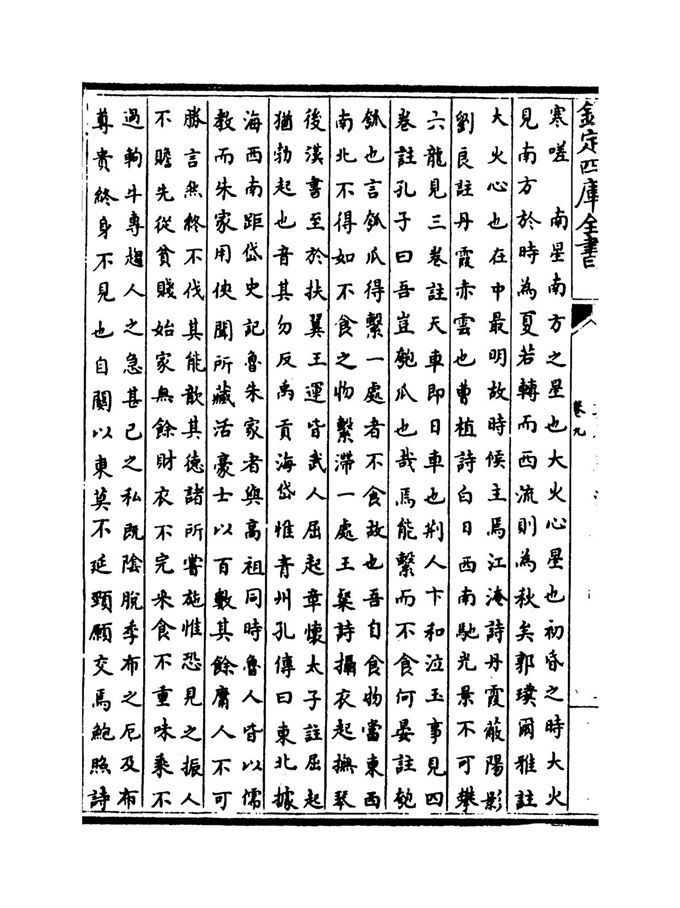 欽定四庫全書
卷九
寒嗟　南星南方之星也大火心星也初昏之時大火
見南方於時為夏若轉而西流則為秋矣郭璞爾雅註
大火心也在中最明故時候主焉江淹詩丹霞蔽陽影
劉良註丹霞赤雲也曹植詩白日西南馳光景不可攀
六龍見三卷註天車即日車也荆人卞和泣玉事見四
卷註孔子曰吾豈匏瓜也哉焉能繫而不食何晏註匏
瓠也言瓠瓜得繫一處者不食故也吾自食物當東西
南北不得如不食之物繫滯一處王粲詩攝衣起撫琴
後漢書至於扶翼王運皆武人屈起章懷太子註屈起
猶勃起也音其勿反禹貢海岱惟青州孔傳曰東北據
海西南距岱史記魯朱家者與高祖同時魯人皆以儒
教而朱家用俠聞所藏活豪士以百數其餘庸人不可
勝言然終不伐其能歆其德諸所嘗施惟恐見之振人
不贍先從貧賤始家無餘財衣不完采食不重味乘不
過軥牛專趨人之急甚己之私既陰脫季布之厄及布
尊貴終身不見也自關以東莫不延頸願交焉鮑照詩